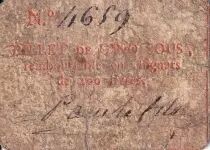 N.º 4659
BILLET DE CINQ SOUS,
remboursable en assignats
de 200 livres.